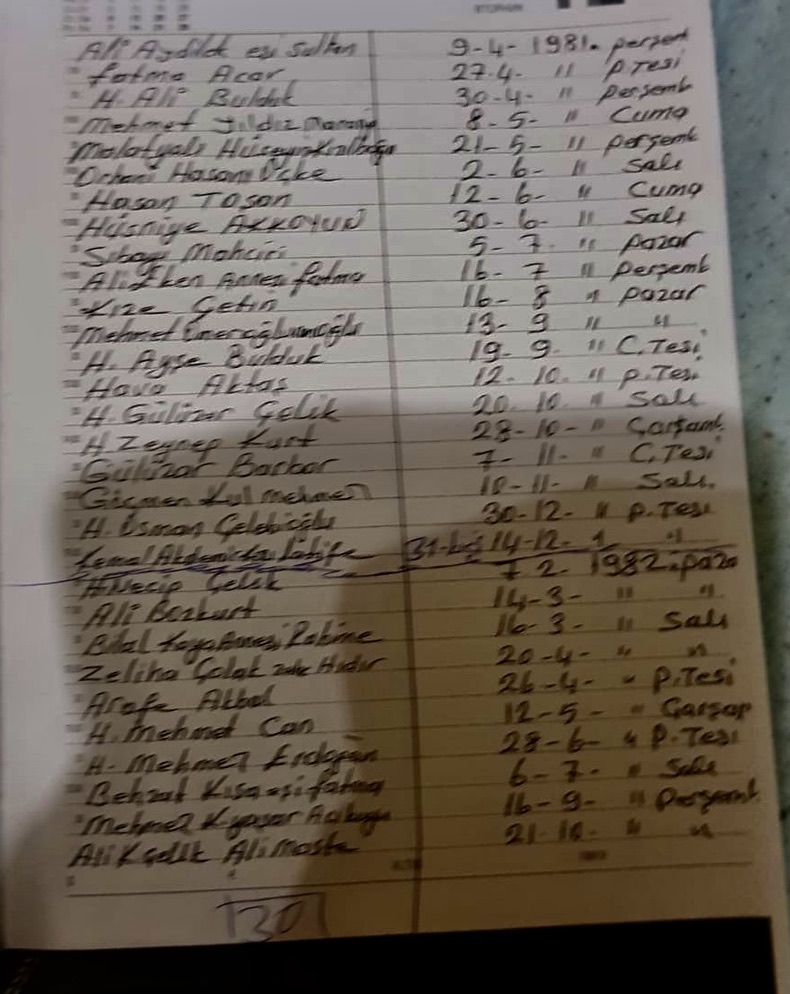 Ali Aydilek esi Sultan 9-4-1981. perşem
" Fatma Acar 27.4. " P.Tesi
" H. Ali Bulduk 30-4- " Perşemb
" Mehmet Yıldız 8-5- " Cuma
" Malatyalı Hüseyin 21-5- " perşemb
" Orhani Hasan 2-6- " Salı
" Hasan Tosan 12-6- " Cuma
" Hüsniye AKKOYUN 30-6- " Salı
5-7- " pazar
" Ali Annesi fatma 16-7 " perşemb
" Kize Çetin 16-8 " pazar
" Mehmet 13-9 " "
" H. Ayşe Bulduk 19-9- " C.Tesi
" Hava Aktaş 12.10. " P.Tesi
" H. Gülüzar Çelik 20.10. " Salı
" H Zeynep Kurt 28-10- " Çarşamb
" Gülüzar Barbar 7-11- " C.Tesi
" Göçmen Kul Mehmet 10-11- " Salı.
" H. Osman Çelebioğlu 30-12- " P.Tesi
Kemal 14-12- "
H Necip Çelik 7 2- 1982.paza
" Ali Bozkurt 14-3- " "
" Bilal Kaya Annesi Rahime 16-3- " Salı
" Zeliha Çolak 20-4- " "
" Arafe Akbal 26-4- " P.Tesi
" H. Mehmet Can 12-5- " Çarşap
" H. Mehmet Erdoğan 28-6- " P.Tesi
" Behzat Kısa eşi fatma 6-7- " Salı
" Mehmet 16-9- " Perşemb
Ali 21-10- " "
130